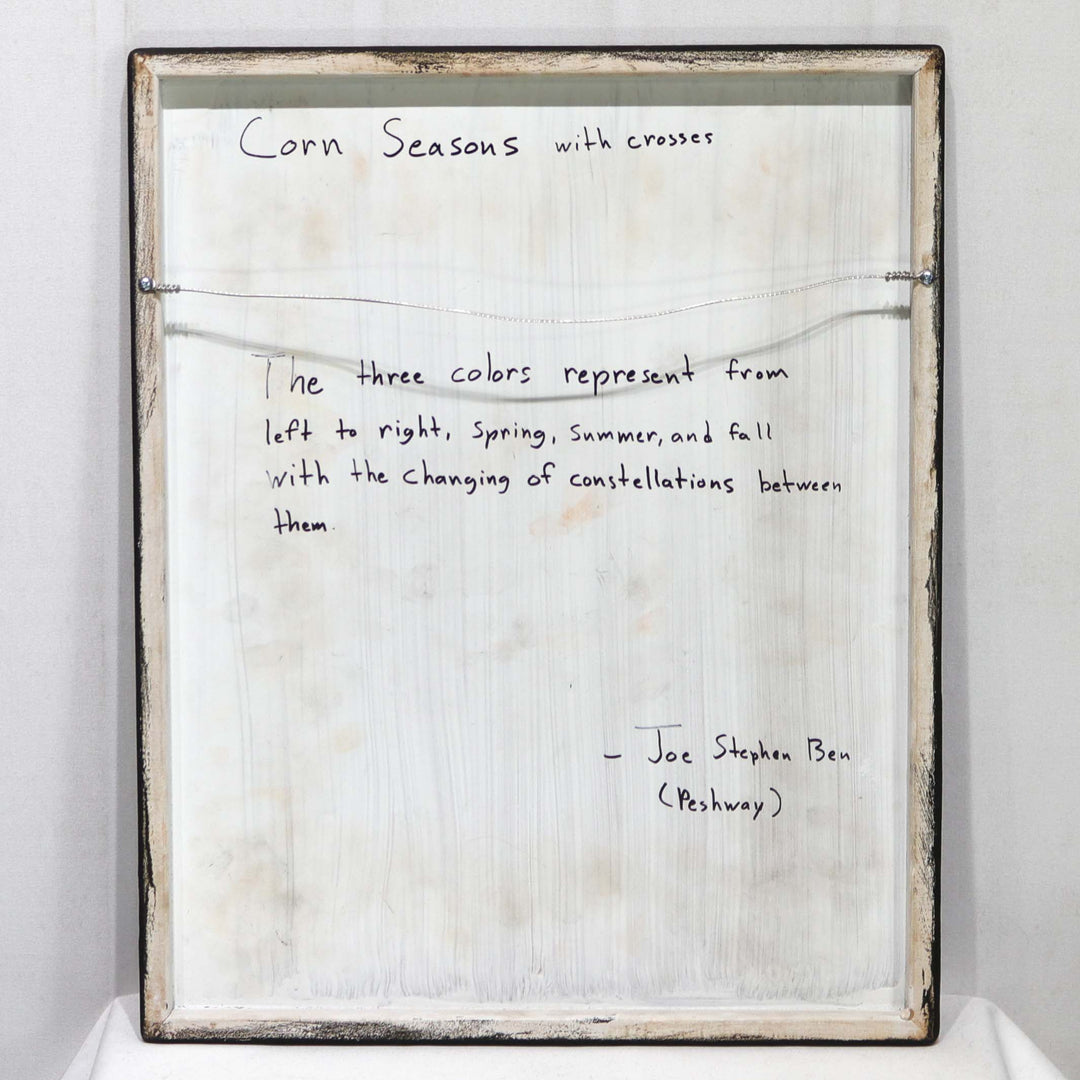 Corn Seasons with crosses
The three colors represent from
left to right, Spring, Summer, and fall
with the changing of constellations between
them.
- Joe Stephen Ben
(Peshway)